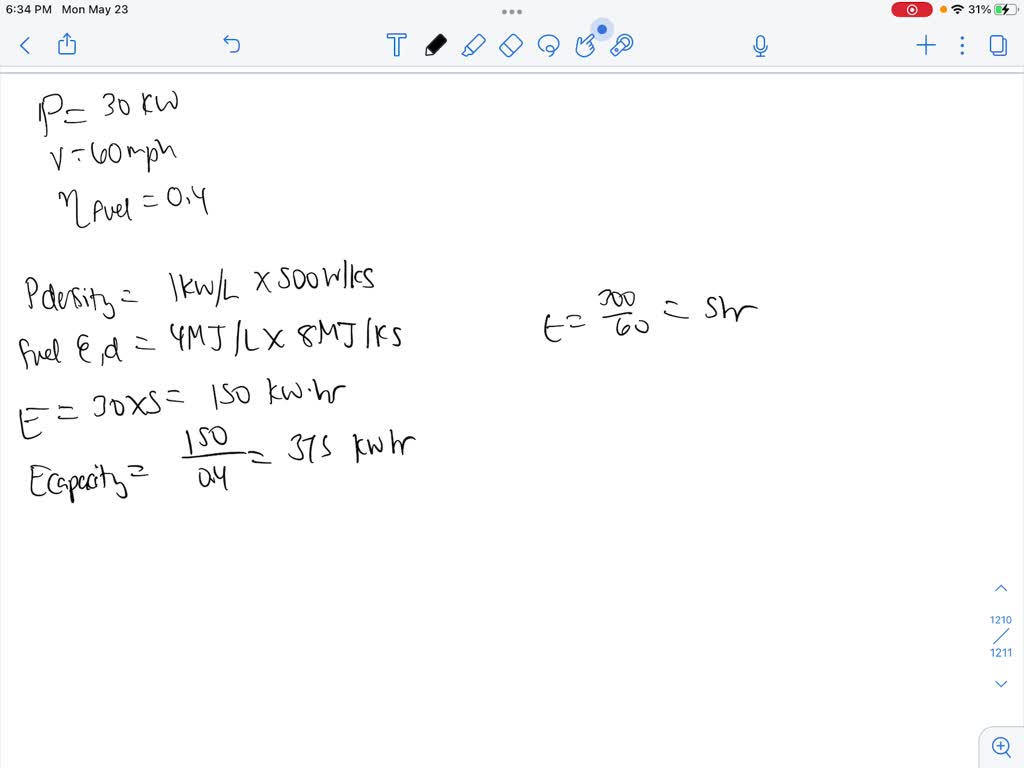 6:34 PM Mon May 23
31%
P = 30 KW
V = 60 mph
η fuel = 0.4
P density = 1 kW/L × 500 W/KS
fuel E,d = 4 MJ/L × 8 MJ/KS
t = 300/60 = 5 hr
E = 30×5 = 150 kW·hr
E capacity = 150/0.4 = 375 kW hr
1210
1211